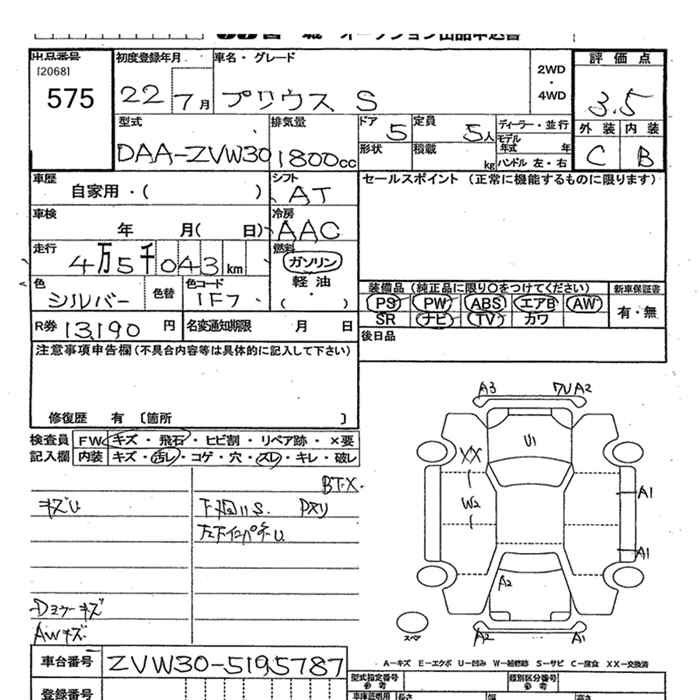 オークション出品申込書
出品番号 初度登録年月 車名・グレード 評価点
[2068]
575 22 7月 プリウス S 2WD・4WD 3.5
型式 排気量 ドア 5 定員 5人 ディーラー・並行 外装 内装
DAA-ZVW30 1800cc 形状 積載 kg モデル年式 年 C B
ハンドル 左・右
車歴 シフト セールスポイント (正常に機能するものに限ります)
自家用・( ) AT
車検 冷房
年 月( 日) AAC
走行 燃料
4万5千043km ガソリン
色 色替 色コード 軽油 装備品 (純正品に限り○をつけてください) 新車保証書
シルバー 1F7 ・( ) PS PW ABS エアB AW 有・無
SR ナビ TV カワ
R券 13,190円 名変通知期限 月 日
後日品
注意事項申告欄 (不具合内容等は具体的に記入して下さい)
修復歴 有 〔箇所 〕
検査員記入欄 FW キズ・飛石・ヒビ割・リペア跡・×要
内装 キズ・汚レ・コゲ・穴・スレ・キレ・破レ
BT-X.
キズU
AWキズ
A3 A2
U1
XX
W2
A1
A1
A2
スペア
A2 A1
車台番号 ZVW30-5195787
A-キズ E-エクボ U-凹み W-補修跡 S-サビ C-腐食 XX-交換済
型式指定番号 参考 類別区分番号 参考
登録番号 車庫証明用 長さ 幅 高さ